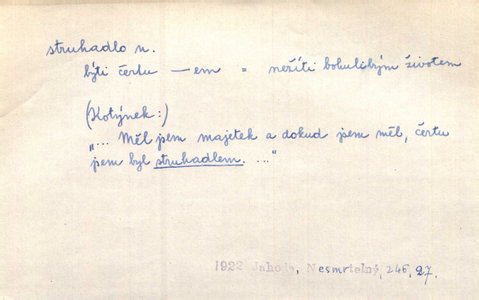 struhadlo n.
býti čertu —em = nežíti bohulibým životem
(Kotýnek:)
„... Měl jsem majetek a dokud jsem měl, čertu
jsem byl struhadlem. ..."
1922 Jahoda, Nesmrtelný, 246, 27.